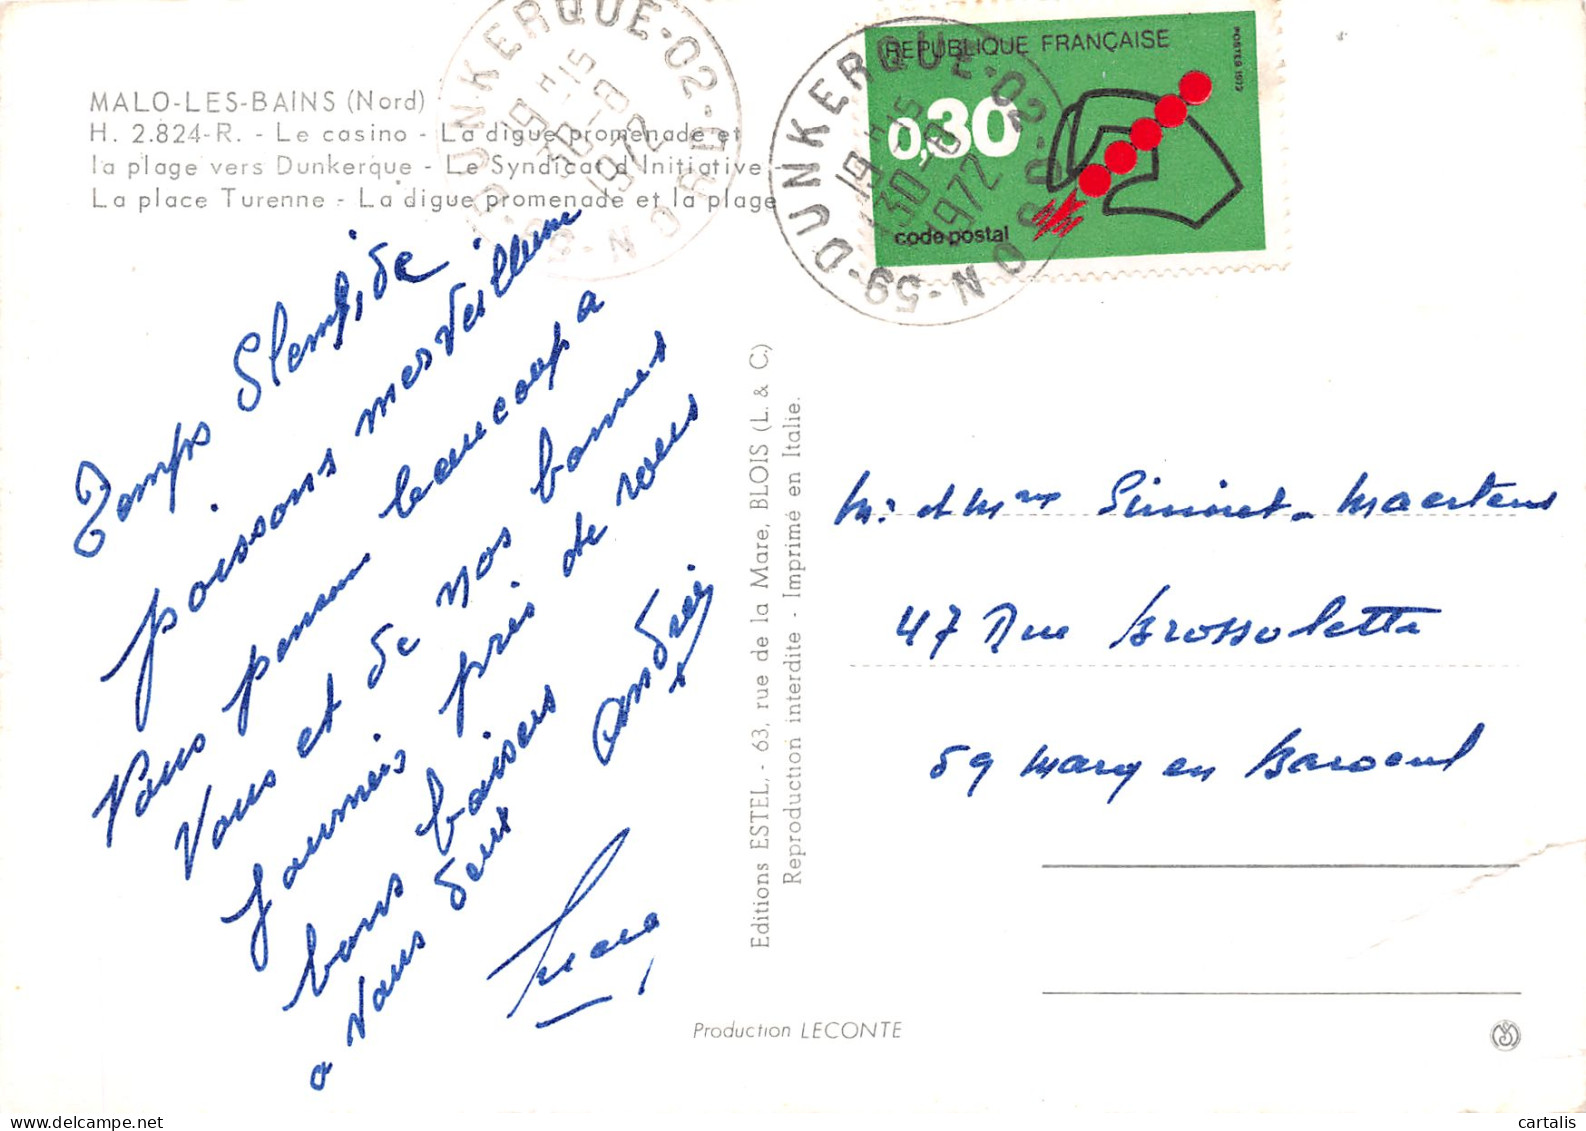 MALO-LES-BAINS (Nord)
H. 2.824-R. - Le casino - La digue promenade et
la plage vers Dunkerque - Le Syndicat d'Initiative -
La place Turenne - La digue promenade et la plage
DUNKERQUE-02
19 H 15
30-8
1972
59-NORD
DUNKERQUE-02
19 H 15
30-8
1972
59-NORD
REPUBLIQUE FRANÇAISE
0,30
code postal
POSTES 1972
Temps Slempide
poissons merveilleux
Vous pensons beaucoup a
Vous et de nos bonnes
journeis près de vous
bons baisers
a Vous deux
Andrée
Editions ESTEL, - 63, rue de la Mare, BLOIS (L. & C.)
Reproduction interdite - Imprimé en Italie.
Mr et Mme Maertens
47 Rue Brossolette
59 Marq en Baroeul
Production LECONTE
cartalis